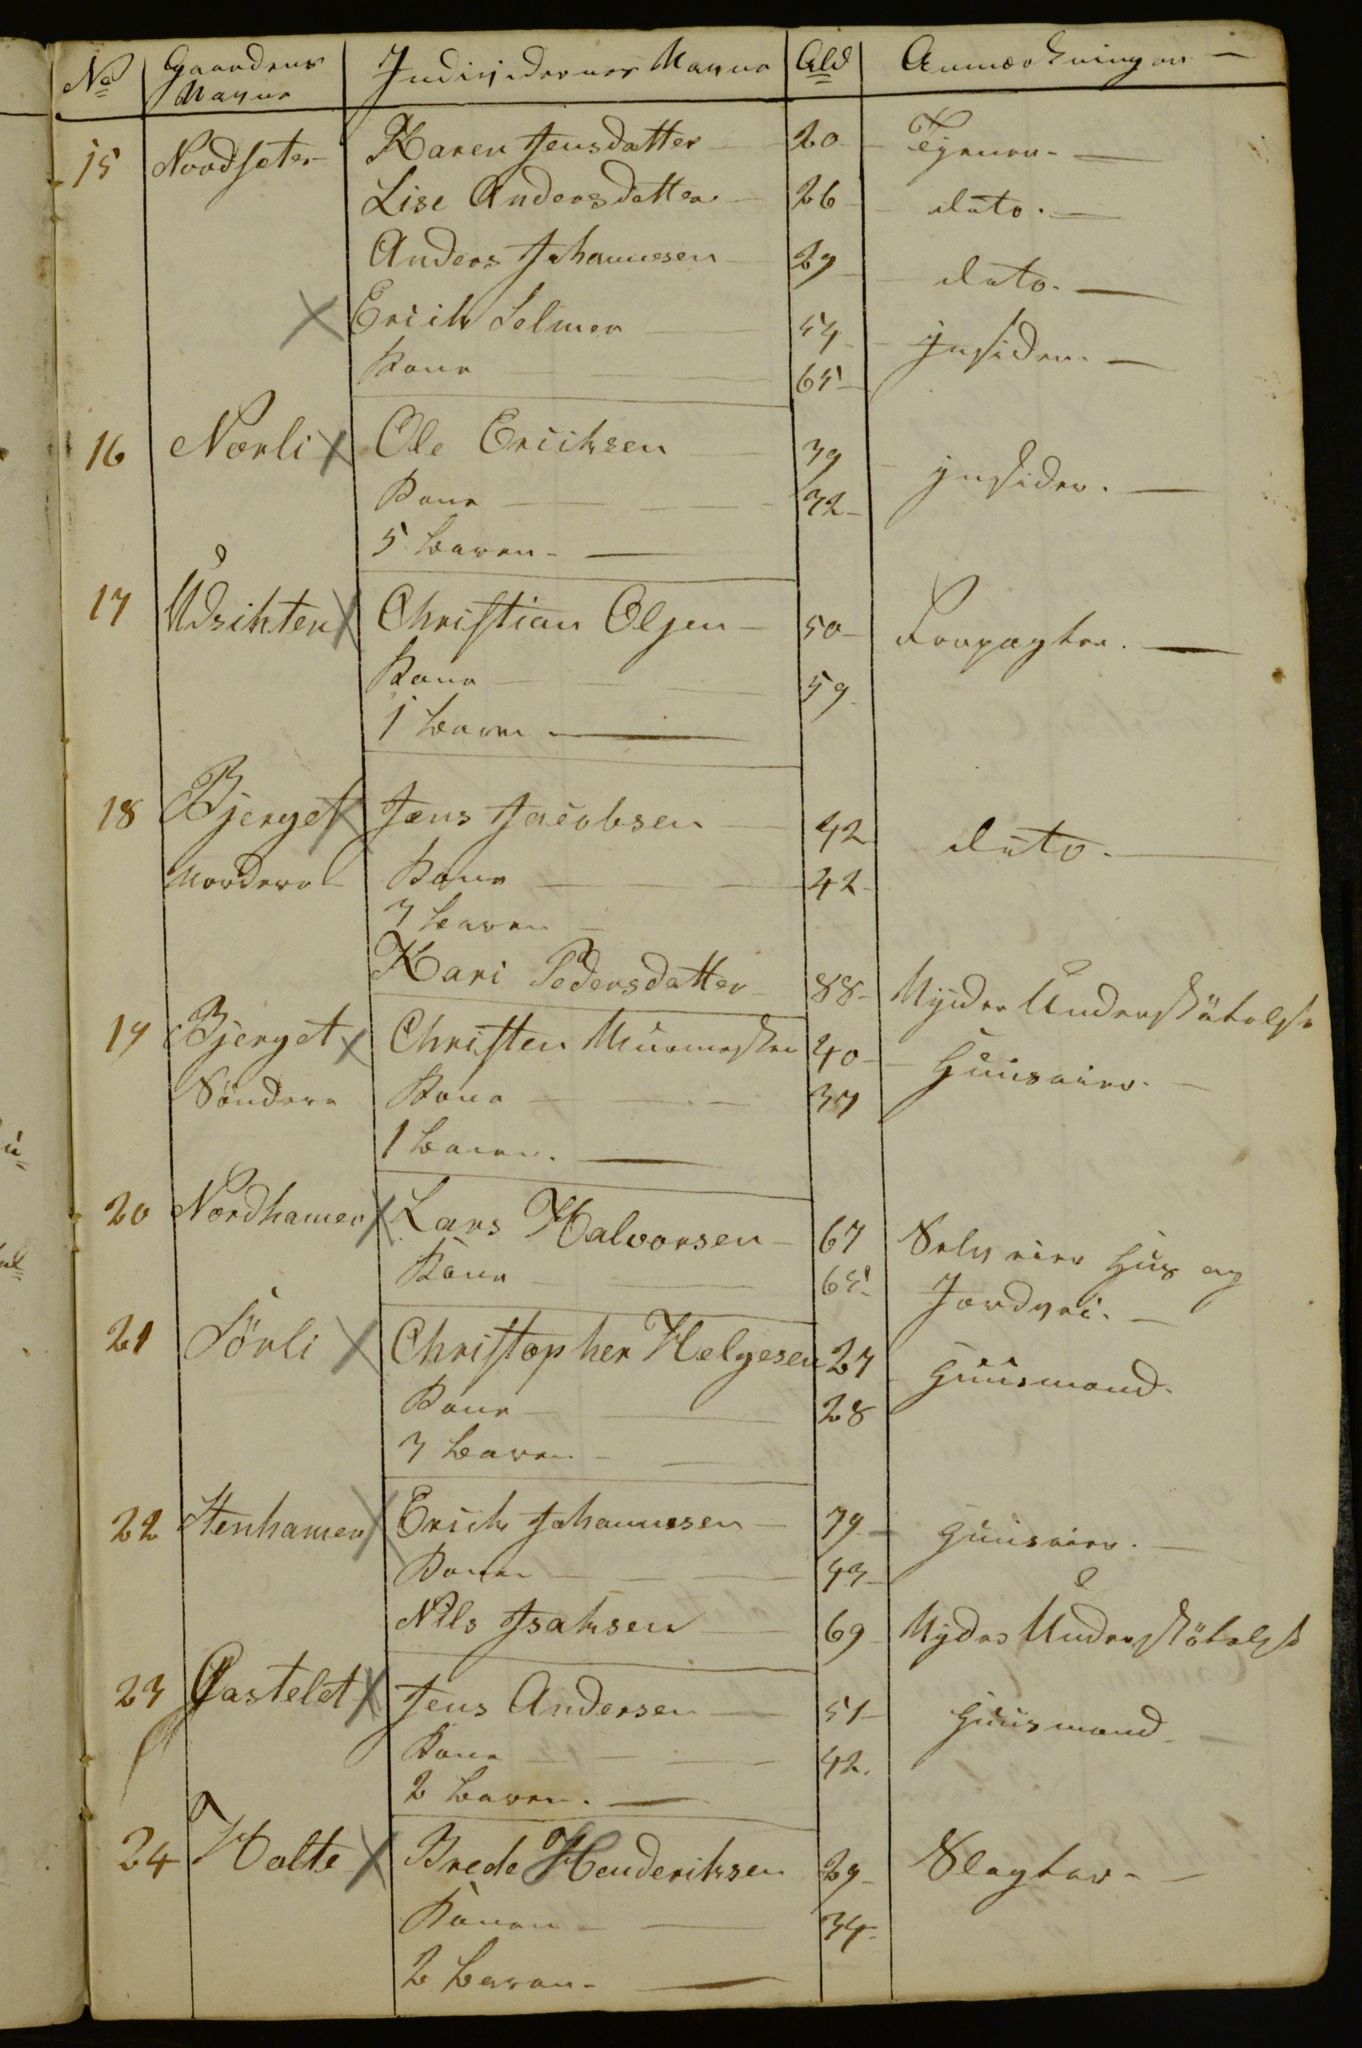 No Gaardens Navne Individernes Navne Ald Anmærkninger —
15 Nordsæter Karen Jensdatter 20 Tjener —
Lise Andersdatter 26 dito. —
Anders Johannesen 29 dito. —
Erich Selmer 54 jnsider. —
Kone 65
16 Norli Ole Eriiksen 39 jnsider. —
Kone 32
5 børn. —
17 Udsikten Christian Olsen 50 Forpagter. —
Kone 59
1 barn. —
18 Bjerget Jens Jacobsen 42 dito. —
Nordere Kone 42
3 børn
Kari Pedersdatter 88 Nyder Understøtelse
19 Bjerget Christen Muurmester 40 Huuseier. —
Søndere Kone 37
1 barn. —
20 Nordhamer Lars Halvorsen 67 Selveier Hus og
Kone 65 Jordvei. —
21 Sörli Christopher Helgesen 27 Huusmand.
Kone 28
3 børn
22 Stenhamer Erich Johannesen 79 Huuseier. —
Kone 43
Nils Isaksen 69 Nyder Understøtelse
23 Gastelet Jens Andersen 51 Huusmand —
Kone 42.
2 børn. —
24 Holte Brede Henderiksen 29 Slagter —
Konen 34
2 børn —